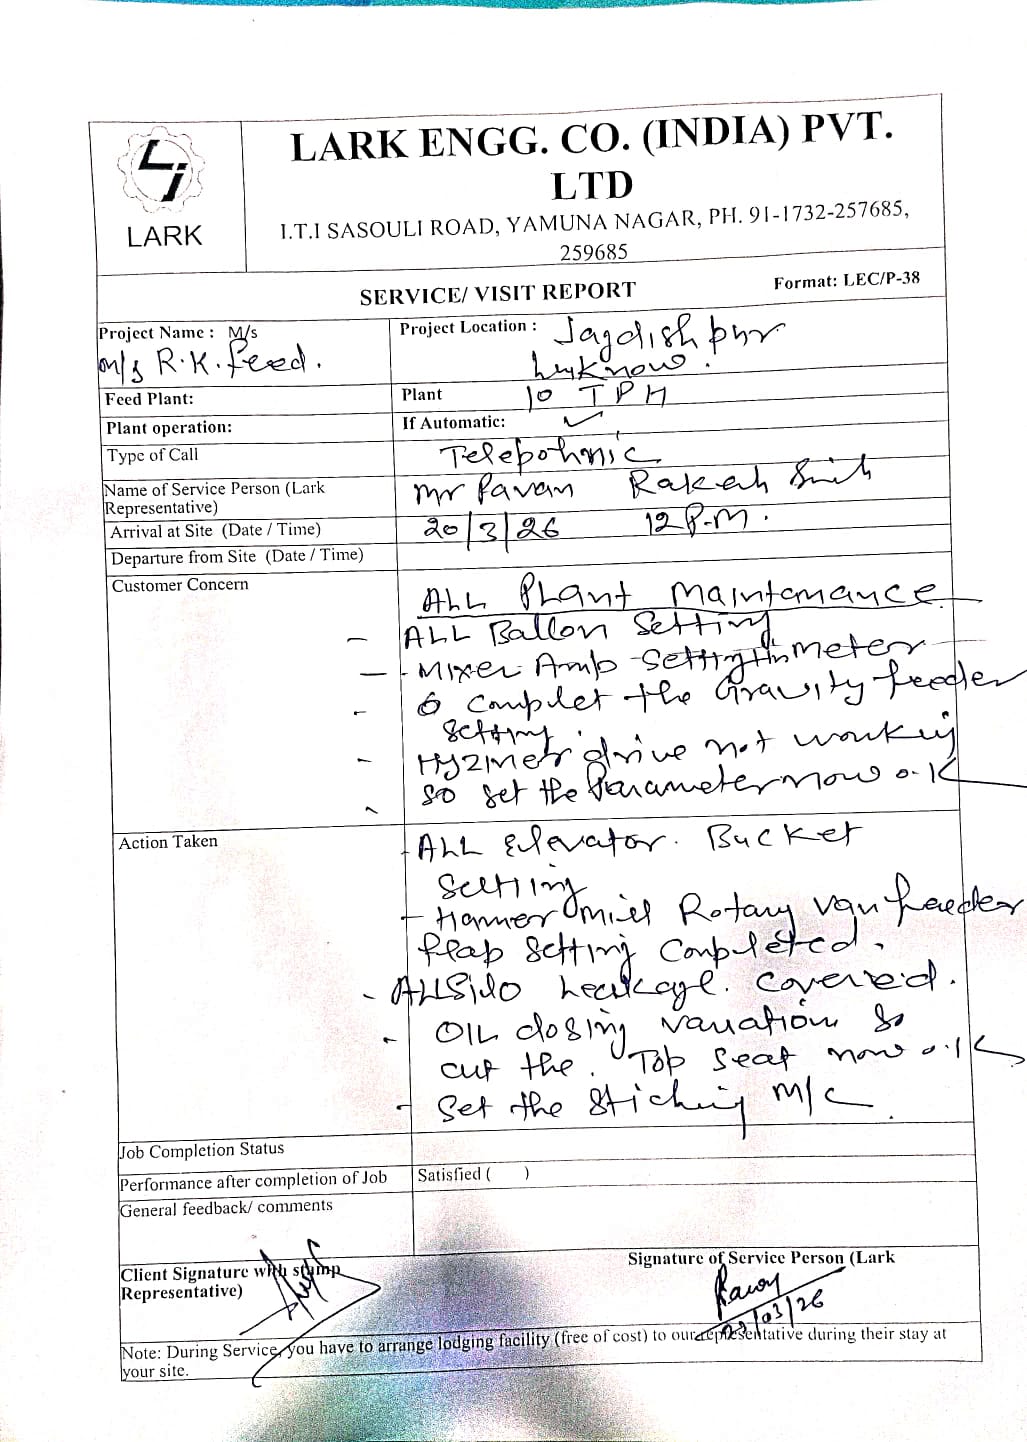 LARK ENGG. CO. (INDIA) PVT.
LTD
LARK
I.T.I SASOULI ROAD, YAMUNA NAGAR, PH. 91-1732-257685,
259685
SERVICE/ VISIT REPORT
Format: LEC/P-38
Project Name : M/s
M/s R.K. feed.
Project Location :
Jagdishpur
Luknow.
Feed Plant:
Plant 10 TPH
Plant operation:
If Automatic: ✓
Type of Call
Telepohnic
Name of Service Person (Lark
Representative)
Mr Pavan Rakesh
Arrival at Site (Date / Time)
20/3/26 12 P.M.
Departure from Site (Date / Time)
Customer Concern
ALL Plant Maintenance
- ALL Ballon Setting
- Mixer Amp Setting meter
- complet the Gravity feeder
setting.
- drive not working
- so set the Parameter now o.K
Action Taken
- ALL Elevator. Bucket
Setting
- Hammer mill Rotary van feeder
flap setting Conpleted.
- ALL Silo Leakage. Covered.
- OIL closing variation so
cut the. Top Seat now o.K
- Set the Stiching M/C.
Job Completion Status
Performance after completion of Job
Satisfied ( )
General feedback/ comments
Client Signature with stamp
Representative)
Signature of Service Person (Lark
/03/26
Note: During Service, you have to arrange lodging facility (free of cost) to our representative during their stay at
your site.